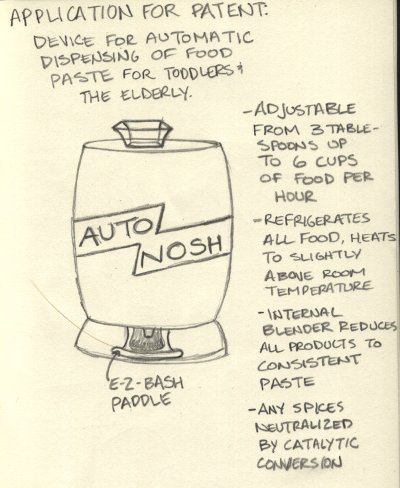 APPLICATION FOR PATENT:
DEVICE FOR AUTOMATIC
DISPENSING OF FOOD
PASTE FOR TODDLERS &
THE ELDERLY.
AUTO
NOSH
E-Z-BASH
PADDLE
-ADJUSTABLE
FROM 3 TABLE-
SPOONS UP
TO 6 CUPS
OF FOOD PER
HOUR
-REFRIGERATES
ALL FOOD, HEATS
TO SLIGHTLY
ABOVE ROOM
TEMPERATURE
-INTERNAL
BLENDER REDUCES
ALL PRODUCTS TO
CONSISTENT
PASTE
-ANY SPICES
NEUTRALIZED
BY CATALYTIC
CONVERSION